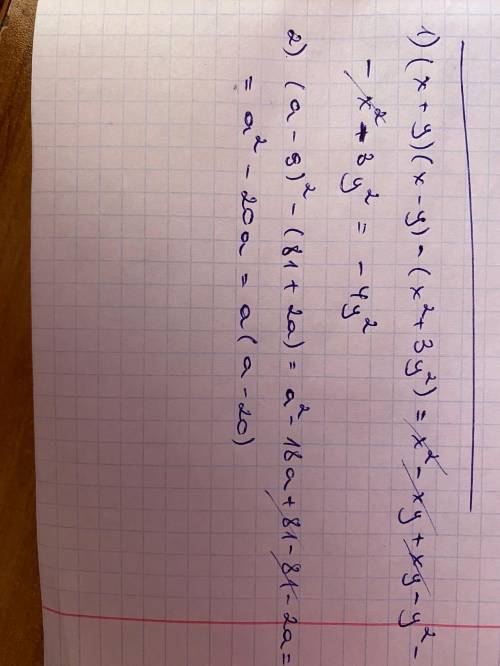 1) (x + y)(x - y) - (x² + 3y²) = x² - xy + xy - y² -
- x² - 3y² = - 4y²
2). (a - 9)² - (81 + 2a) = a² - 18a + 81 - 81 - 2a =
= a² - 20a = a(a - 20)